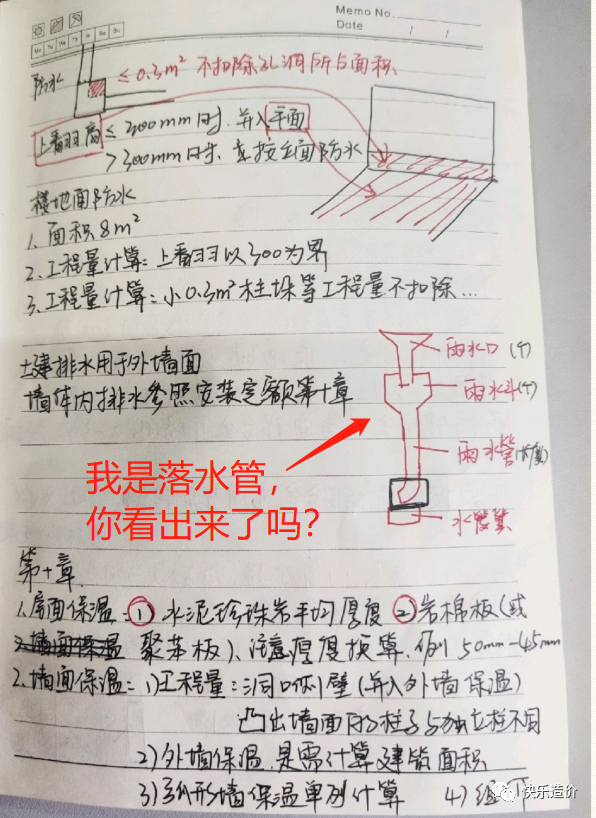 Memo No.
Date / /
Mo Tu We Th Fr Sa Su
防水 ≤0.3m² 不扣除孔洞所占面积
上翻羽高 ≤300mm时,并入平面
>300mm时,直按立面防水
楼地面防水
1、面积8m²
2、工程量计算:上翻羽以300为界
3、工程量计算:小0.3m²柱垛等工程量不扣除…
土建排水用于外墙面
墙体内排水参照安装定额第十章
雨水口(个)
雨水斗(个)
雨水管(长度)
我是落水管,
你看出来了吗?
第十章
1、屋面保温:① 水泥珍珠岩平均厚度 ②岩棉板(或
2、墙面保温 聚苯板)、注意厚度换算,例 50mm-45mm
2、墙面保温:1)工程量:洞口侧壁(并入外墙保温)
凸出墙面的柱子与独立柱不同
2)外墙保温,是需计算建筑面积
3)弧形墙保温单列计算 4)
快乐造价